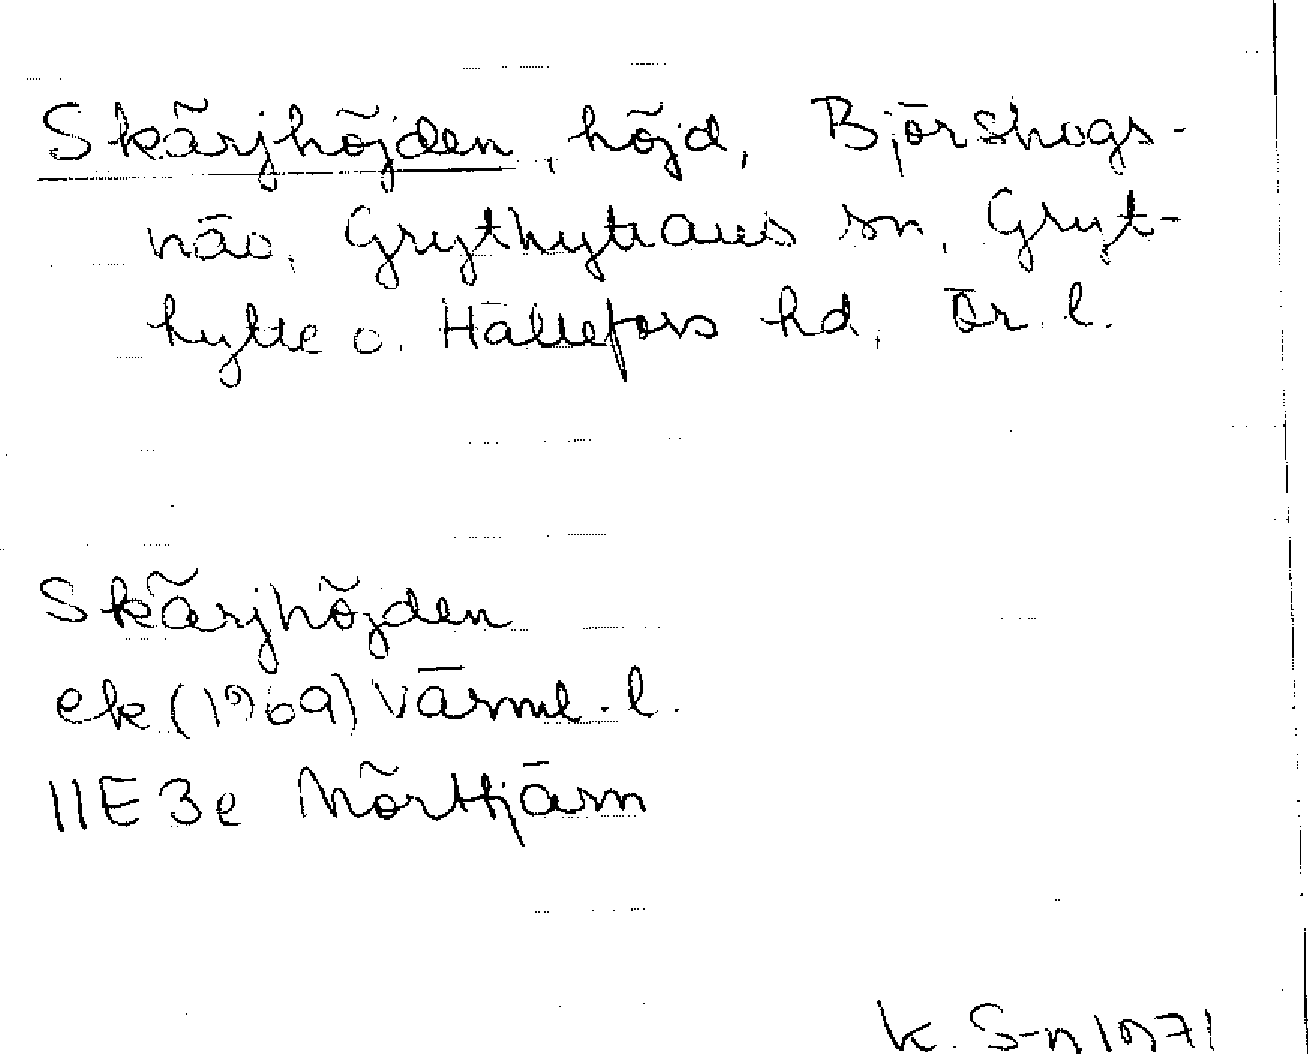 Skärjhöjden, höjd, Björskogs-
näs, Grythyttans sn, Gryt-
hytte o. Hällefors hd, Ör. l.
Skärjhöjden
ek (1969) Värml. l.
11E 3e Mörttjärn
K. S-n 1971